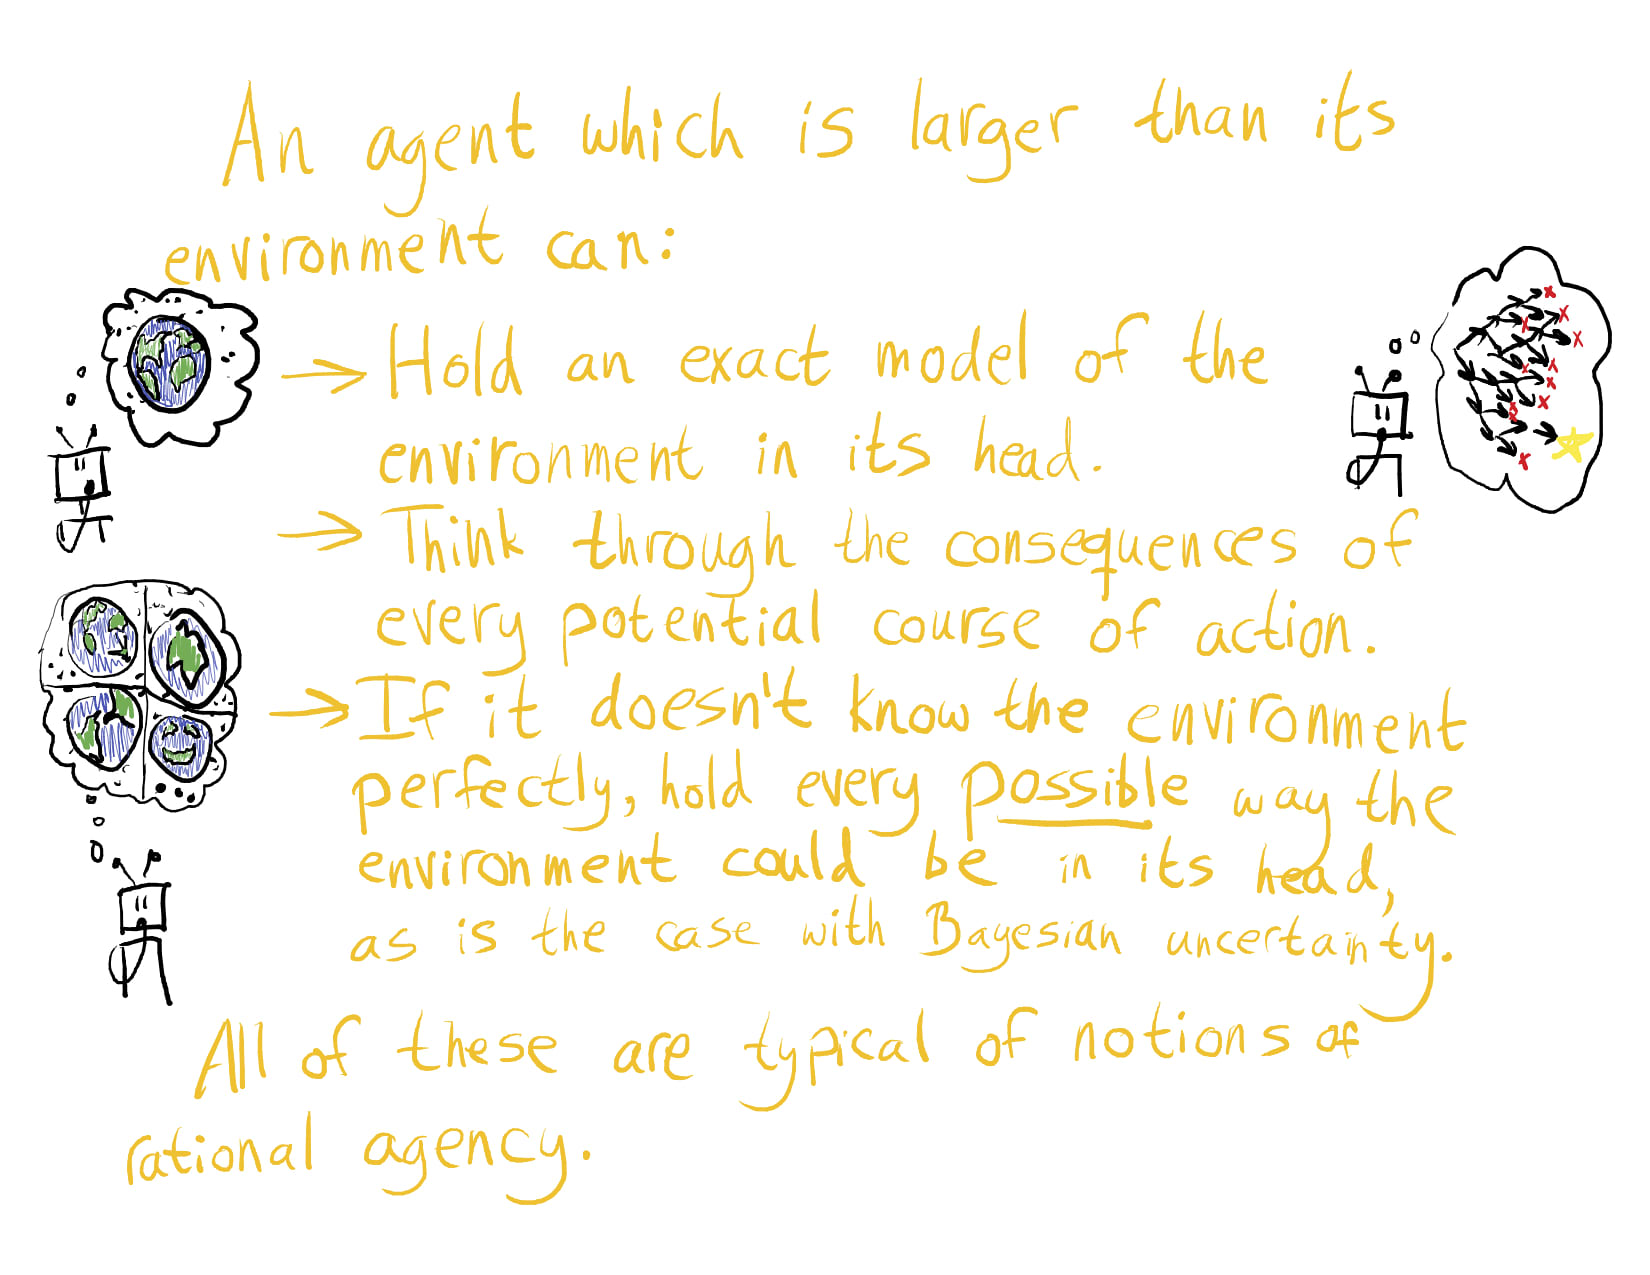 An agent which is larger than its
environment can:
→ Hold an exact model of the
environment in its head.
→ Think through the consequences of
every potential course of action.
→ If it doesn't know the environment
perfectly, hold every possible way the
environment could be in its head,
as is the case with Bayesian uncertainty.
All of these are typical of notions of
rational agency.